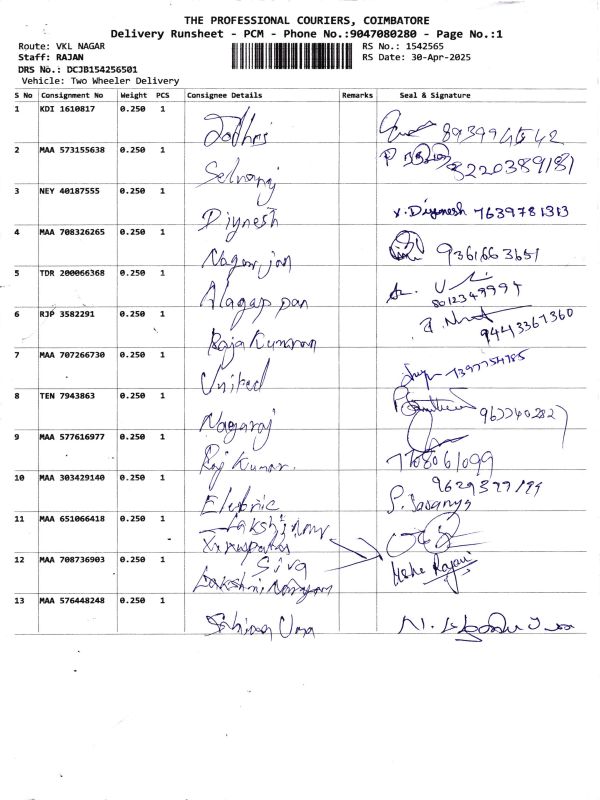 THE PROFESSIONAL COURIERS, COIMBATORE
Delivery Runsheet - PCM - Phone No.:9047080280 - Page No.:1
Route: VKL NAGAR RS No.: 1542565
Staff: RAJAN RS Date: 30-Apr-2025
DRS No.: DCJB154256501
Vehicle: Two Wheeler Delivery
S No Consignment No Weight PCS Consignee Details Remarks Seal & Signature
1 KDI 1610817 0.250 1
2 MAA 573155638 0.250 1 Selvaraj 8220389181
3 NEY 40187555 0.250 1 Diynesh v. Diynesh 7639781313
4 MAA 708326265 0.250 1 Nagarajan 9361663651
5 TDR 200066368 0.250 1 Alagappan 8012349994
6 RJP 3582291 0.250 1 Raja Kumaran 9443367360
7 MAA 707266730 0.250 1 United
8 TEN 7943863 0.250 1 Nagaraj
9 MAA 577616977 0.250 1 Raj Kumar. 7708061099
10 MAA 303429140 0.250 1
11 MAA 651066418 0.250 1
12 MAA 708736903 0.250 1 Siva
Lakshmi Narayan
13 MAA 576448248 0.250 1 Uma